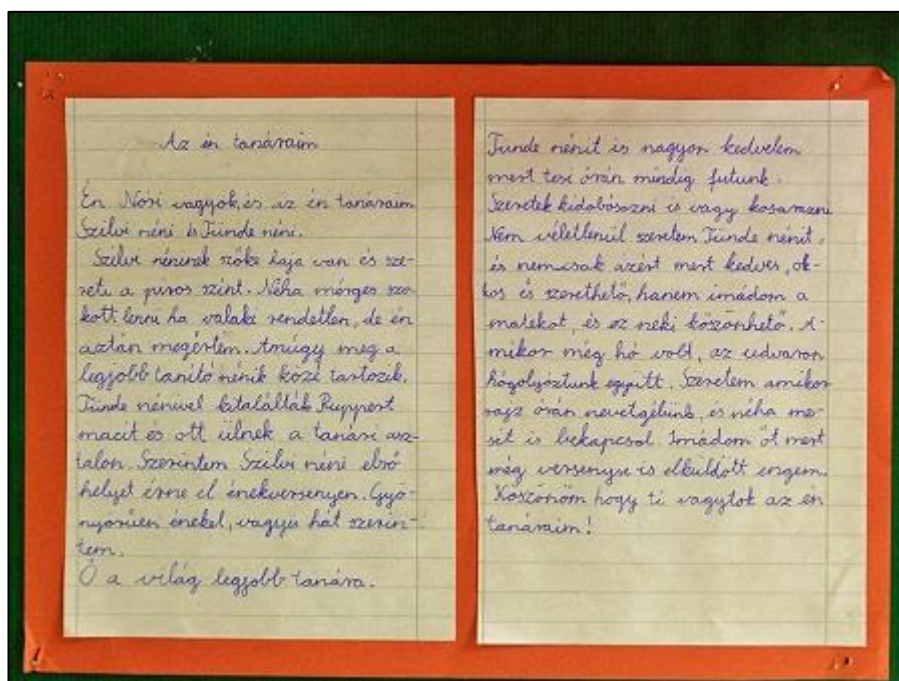 Az én tanáraim
Én Nóri vagyok, és az én tanáraim
Szilvi néni és Tünde néni.
Szilvi néninek szőke haja van és sze-
reti a piros színt. Néha mérges szo-
kott lenni ha valaki rendetlen, de én
aztán megértem. Amúgy meg a
legjobb tanító nénik közé tartozik.
Tünde nénivel kitalálták Ruppert
macit és ott ülnek a tanári asz-
talon. Szerintem Szilvi néni első
helyet érne el énekversenyen. Gyö-
nyörűen énekel, vagyis hát szerin-
tem.
Ő a világ legjobb tanára.
Tünde nénit is nagyon kedvelem
mert tesi órán mindig futunk.
Szeretek kidobósozni is vagy kosarazni
Nem véletlenül szeretem Tünde nénit,
és nemcsak azért mert kedves, ok-
kos és szerethető, hanem imádom a
matekot, és ez neki köszönhető. A-
mikor még hó volt, az udvaron
hógolyóztunk együtt. Szeretem amikor
rajz órán nevetgélünk, és néha me-
sét is bekapcsol. Imádom őt mert
még versenyre is elküldött engem.
Köszönöm hogy ti vagytok az én
tanáraim!